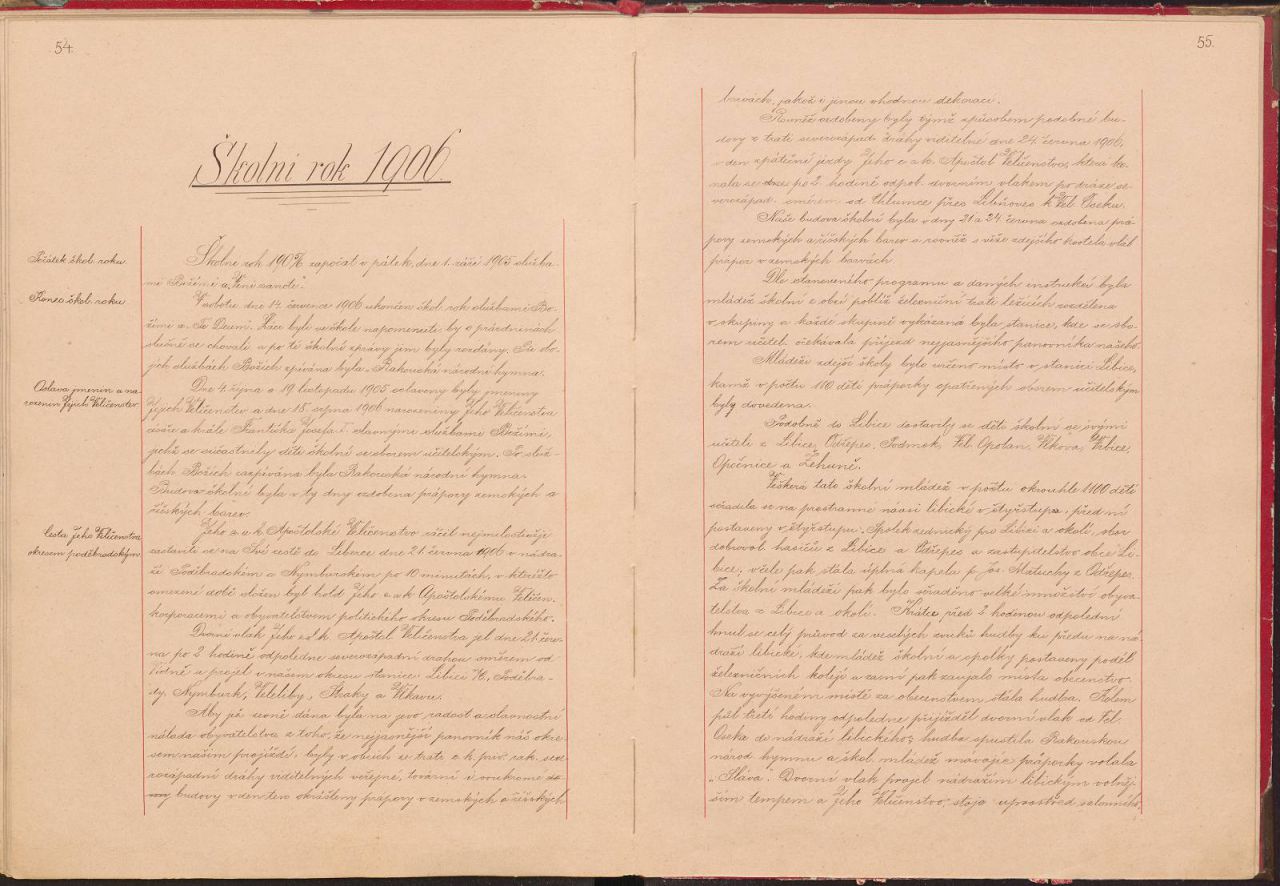 54.
Školní rok 1906.
Počátek škol. roku
Školní rok 190 6/5 započat v pátek, dne 1. září 1905 služba-
mi Božími a „Veni sancte".
Konec škol. roku
V sobotu dne 14. července 1906 ukončen škol. rok službami Bo-
žími a „Te Deum". Žáci byli ve škole napomenuti, by o prázdninách
slušně se chovali a po té školní zprávy jim byly rozdány. Při obo-
jích službách Božích zpívána byla „Rakouská národní hymna".
Oslava jmenin a na-
rozenin Jejich Veličenstev
Dne 4. října a 19. listopadu 1905 oslaveny byly jmeniny
Jejich Veličenstev a dne 18. srpna 1906 narozeniny Jeho Veličenstva
císaře a krále Františka Josefa I. slavnými službami Božími,
jichž se súčastnily děti školní se sborem učitelským. Po služ-
bách Božích zazpívána byla Rakouská národní hymna.
Budova školní byla v ty dny ozdobena prápory zemských a
říšských barev.
Cesta Jeho Veličenstva
okresem poděbradským
Jeho c. a k. Apoštolské Veličenstvo ráčil nejmilostivěji
zastaviti se na Své cestě do Liberce dne 21. června 1906 v nádra-
ží Poděbradském a Nymburském po 10 minutách, v kteréžto
omezené době složen byl hold Jeho c. a k. Apoštolskému Veličen.
korporacemi a obyvatelstvem politického okresu Poděbradského.
Dvorní vlak Jeho c. a k. Apoštol. Veličenstva jel dne 21. červ-
na po 2 hodině odpoledne severozápadní drahou směrem od
Vídně a projel v našem okresu stanice: Libice n/C., Poděbra-
dy, Nymburk, Veleliby, Straky a Vlkavu.
Aby již zevně dána byla na jevo radost a slavnostní
nálada obyvatelstva z toho, že nejjasnější panovník náš okre-
sem naším projíždí, byly v obcích ze trati c. k. priv. rak. seve-
rozápadní dráhy viditelných veřejné, tovární i soukromé
budovy v den ten okrášleny prápory v zemských a říšských
55.
barvách, jakož i jinou vhodnou dekorací.
Rovněž ozdobeny byly týmž způsobem podobné bu-
dovy z trati severozápad. dráhy viditelné dne 24. června 1906,
v den zpáteční jízdy Jeho c. a k. Apoštol. Veličenstva, která ko-
nala se dne po 2. hodině odpol. dvorním vlakem po dráze se-
verozápad. směrem od Chlumce přes Libňoves k Vel. Oseku.
Naše budova školní byla v dny 21. a 24. června ozdobena prá-
pory zemských a říšských barev a rovněž s věže zdejšího kostela vlál
prápor v zemských barvách.
Dle stanoveného programu a daných instrukcí byla
mládež školní z obcí poblíž železniční trati ležících rozdělena
v skupiny a každé skupině vykázána byla stanice, kde se sbo-
rem učitel. očekávala příjezd nejjasnějšího panovníka našeho.
Mládeži zdejší školy bylo určeno místo v stanici Libice,
kamž v počtu 110 dětí práporky opatřených sborem učitelským
byly dovedena.
Podobně do Libice dostavily se děti školní se svými
učiteli z Libice, Odřepes, Podmok, Vel. Opolan, Vlkova, Vrbice,
Opočnice a Žehuně.
Veškerá tato školní mládež v počtu okrouhle 1100 dětí
seřadila se na prostranné návsi libické v čtyřstupu, před ní
postaveny v čtyřstupu: Spolek rolnický pro Libici a okolí, sbor
dobrovol. hasičů z Libice a Odřepes a zastupitelstvo obce Li-
bice; v čele pak stála úplná kapela p. Jos. Matuchy z Odřepes.
Za školní mládeží pak bylo seřaděno velké množství obyva-
telstva z Libice a okolí. Krátce před 2 hodinou odpolední
hnul se celý průvod za veselých zvuků hudby ku předu na ná-
draží libické, kde mládež školní a spolky postaveny podél
železničních kolejí a za ní pak zaujalo místa obecenstvo.
Na vyvýšeném místě za obecenstvem stála hudba. Kolem
půl třetí hodiny odpoledne přijížděl dvorní vlak od Vel.
Oseka do nádraží libického; hudba spustila Rakouskou
národ. hymnu a škol. mládež mávajíc práporky volala
„Sláva". Dvorní vlak projel nádražím libickým volněj-
ším tempem a Jeho Veličenstvo, stoje uprostřed salonního